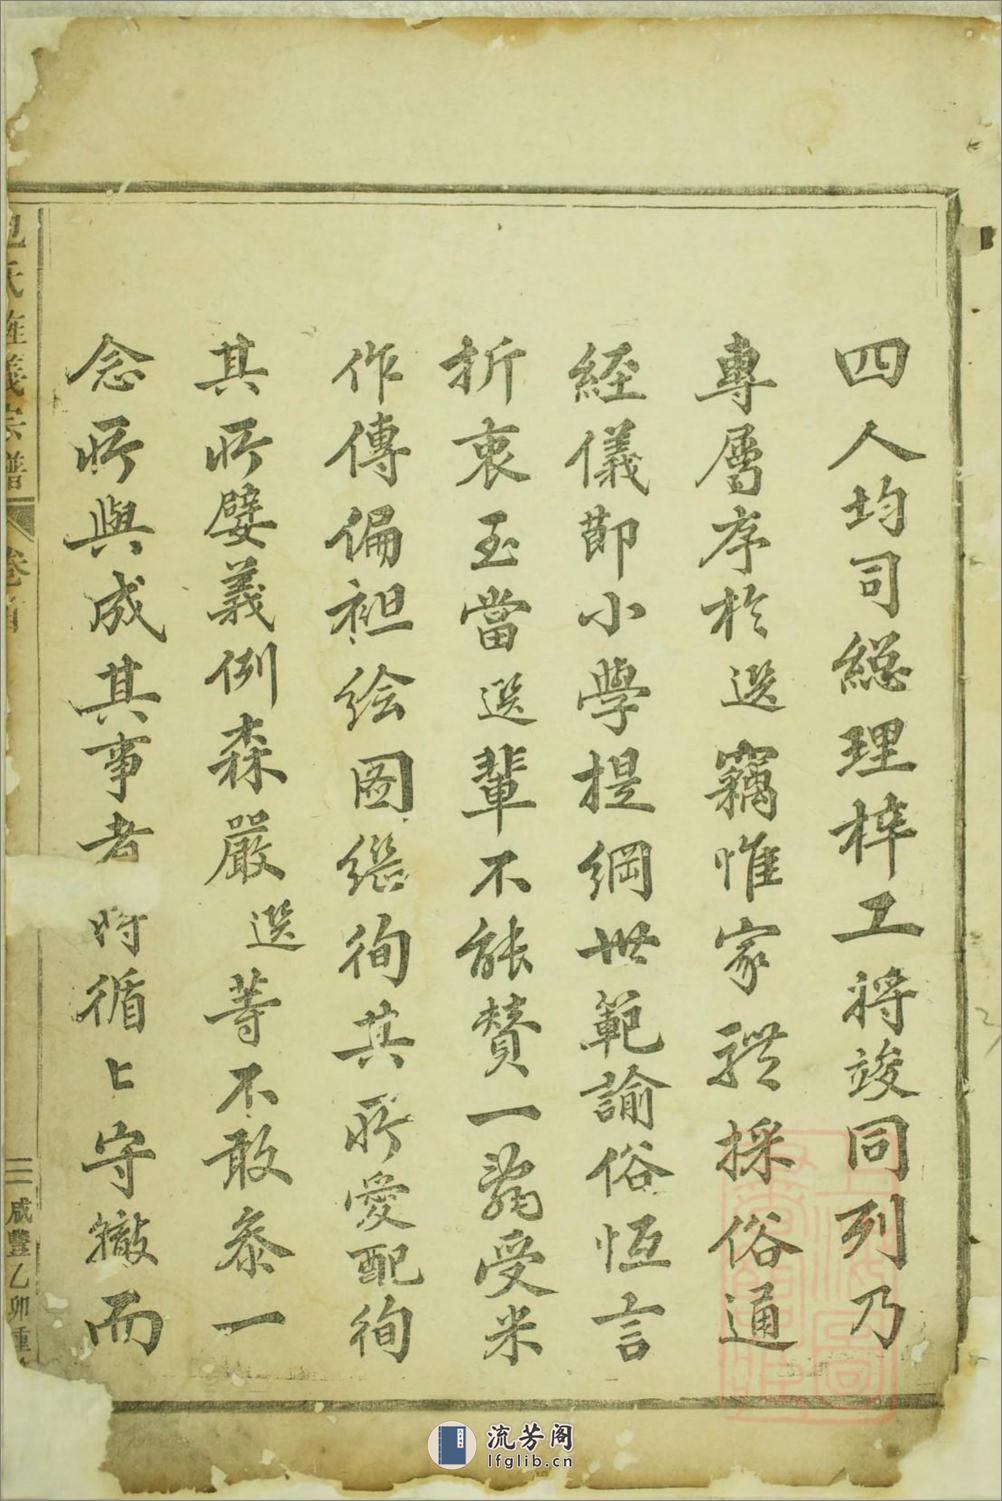 四人均司総理梓工將竣同列乃
專屬序於選竊惟家禮採俗通
經儀節小學提綱世範諭俗恆言
折衷至當選輩不能贊一辭受米
作傳偏袒绘图繼徇其所愛配徇
其所嬖義例森嚴選等不敢參一
念所與成其事者將循卜守轍而
包氏旌義宗譜 卷首 三 咸豐乙卯重
流芳阁
lfglib.cn